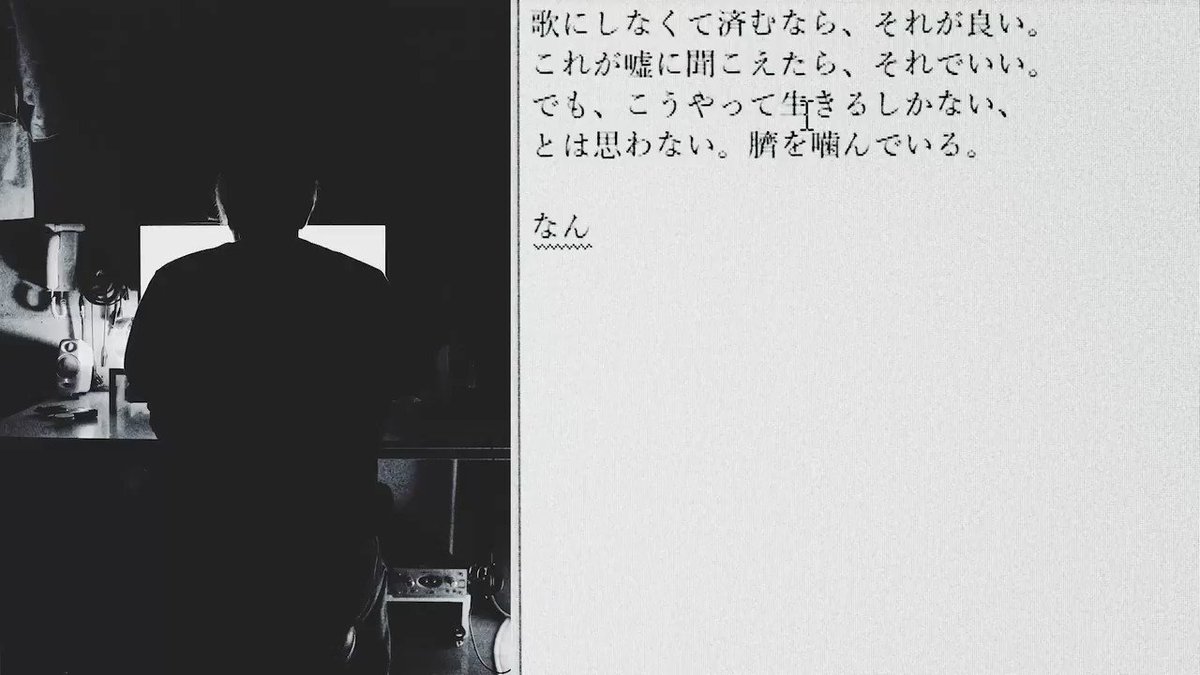 歌にしなくて済むなら、それが良い。
これが嘘に聞こえたら、それでいい。
でも、こうやって生きるしかない、
とは思わない。臍を噛んでいる。
なん